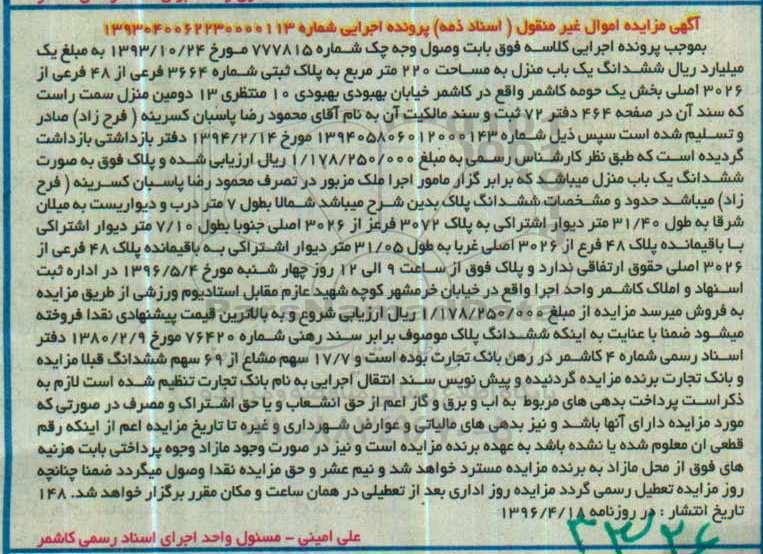 آگهی مزایده اموال غیر منقول ( اسناد ذمه) پرونده اجرایی شماره ۱۳۹۳۰۴۰۰۶۲۲۳۰۰۰۰۱۱۳
بموجب پرونده اجرایی کلاسه فوق بابت وصول وجه چک شماره ۷۷۷۸۱۵ مورخ ۱۳۹۳/۱۰/۲۴ به مبلغ یک
میلیارد ریال ششدانگ یک باب منزل به مساحت ۲۲۰ متر مربع به پلاک ثبتی شماره ۳۶۶۴ فرعی از ۴۸ فرعی از
۳۰۲۶ اصلی بخش یک حومه کاشمر واقع در کاشمر خیابان بهبودی بهبودی ۱۰ منتظری ۱۳ دومین منزل سمت راست
که سند آن در صفحه ۴۶۴ دفتر ۷۲ ثبت و سند مالکیت آن به نام آقای محمود رضا پاسبان کسرینه ( فرح زاد) صادر
و تسلیم شده است سپس ذیل شماره ۱۳۹۴۰۵۸۰۶۰۱۲۰۰۰۱۴۳ مورخ ۱۳۹۴/۲/۱۴ دفتر بازداشتی بازداشت
گردیده است که طبق نظر کارشناس رسمی به مبلغ ۱/۱۷۸/۲۵۰/۰۰۰ ریال ارزیابی شده و پلاک فوق به صورت
ششدانگ یک باب منزل میباشد که برابر گزار مامور اجرا ملک مزبور در تصرف محمود رضا پاسبان کسرینه ( فرح
زاد) میباشد حدود و مشخصات ششدانگ پلاک بدین شرح میباشد شمالا بطول ۷ متر درب و دیواریست به میلان
شرقا به طول ۳۱/۴۰ متر دیوار اشتراکی به پلاک ۳۰۷۲ فرغز از ۳۰۲۶ اصلی جنوبا بطول ۷/۱۰ متر دیوار اشتراکی
با باقیمانده پلاک ۴۸ فرع از ۳۰۲۶ اصلی غربا به طول ۳۱/۰۵ متر دیوار اشتراکی به باقیمانده پلاک ۴۸ فرعی از
۳۰۲۶ اصلی حقوق ارتفاقی ندارد و پلاک فوق از ساعت ۹ الی ۱۲ روز چهار شنبه مورخ ۱۳۹۶/۵/۴ در اداره ثبت
اسنهاد و املاک کاشمر واحد اجرا واقع در خیابان خرمشهر کوچه شهید عازم مقابل استادیوم ورزشی از طریق مزایده
به فروش میرسد مزایده از مبلغ ۱/۱۷۸/۲۵۰/۰۰۰ ریال ارزیابی شروع و به بالاترین قیمت پیشنهادی نقدا فروخته
میشود ضمنا با عنایت به اینکه ششدانگ پلاک موصوف برابر سند رهنی شماره ۷۶۴۲۰ مورخ ۱۳۸۰/۲/۹ دفتر
اسناد رسمی شماره ۴ کاشمر در رهن بانک تجارت بوده است و ۱۷/۷ سهم مشاع از ۶۹ سهم ششدانگ قبلا مزایده
و بانک تجارت برنده مزایده گردنیده و پیش نویس سند انتقال اجرایی به نام بانک تجارت تنظیم شده است لازم به
ذکراست پرداخت بدهی های مربوط به اب و برق و گاز اعم از حق انشعاب و یا حق اشتراک و مصرف در صورتی که
مورد مزایده دارای آنها باشد و نیز بدهی های مالیاتی و عوارض شهرداری و غیره تا تاریخ مزایده اعم از اینکه رقم
قطعی ان معلوم شده یا نشده باشد به عهده برنده مزایده است و نیز در صورت وجود مازاد وجوه پرداختی بابت هزنیه
های فوق از محل مازاد به برنده مزایده مسترد خواهد شد و نیم عشر و حق مزایده نقدا وصول میگردد ضمنا چنانچه
روز مزایده تعطیل رسمی گردد مزایده روز اداری بعد از تعطیلی در همان ساعت و مکان مقرر برگزار خواهد شد. ۱۴۸
تاریخ انتشار : در روزنامه ۱۳۹۶/۴/۱۸
علی امینی - مسئول واحد اجرای اسناد رسمی کاشمر